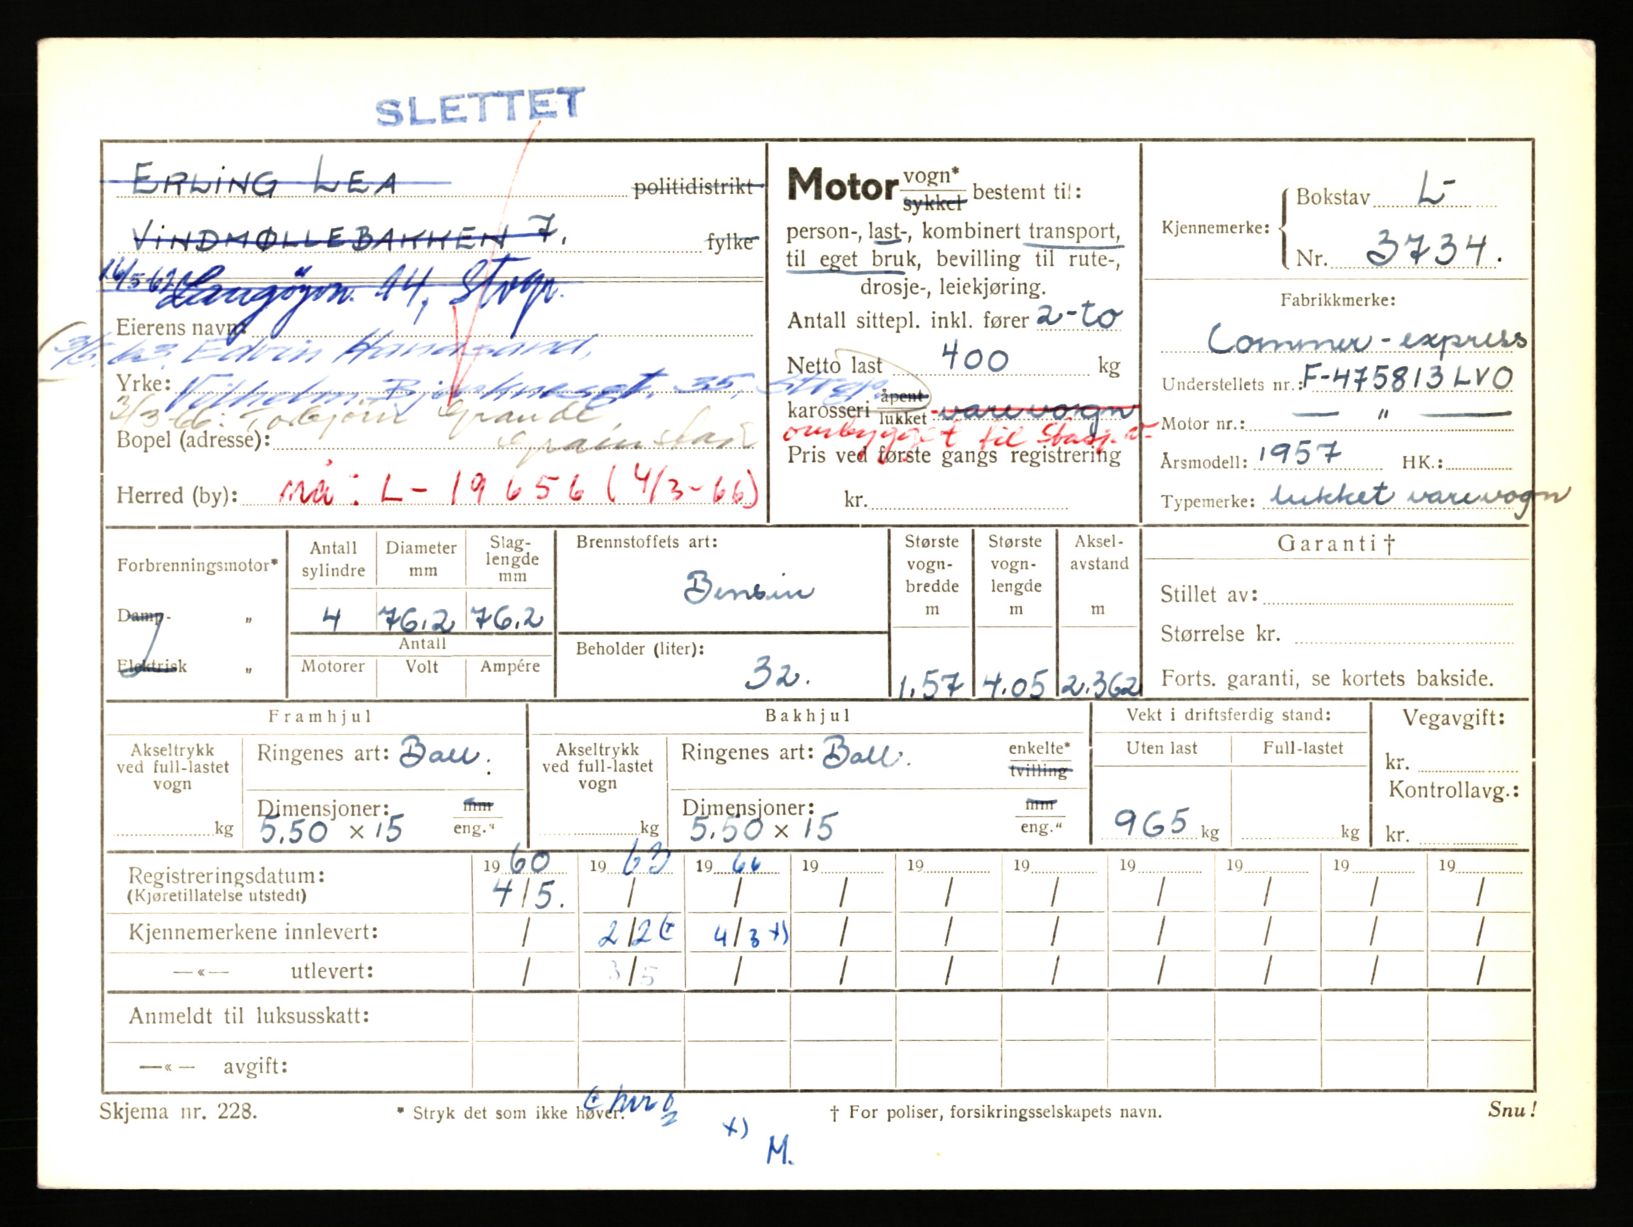 SLETTET
ERLING LEA politidistrikt
VINDMØLLEBAKKEN 7. fylke
16/5-61 Langøyvn. 14, Stvgr.
Eierens navn:
3/5.63. Edvin Haadsand,
Yrke: 35, Stvgr.
3/3-66. Torbjörn Grande
Bopel (adresse):
Herred (by): nå: L-19656 (4/3-66)
Motor vogn* sykkel bestemt til:
person-, last-, kombinert transport,
til eget bruk, bevilling til rute-,
drosje-, leiekjøring.
Antall sittepl. inkl. fører 2-to
Netto last 400 kg
karosseri åpent lukket varevogn
ombygget til Stasj.v.
Pris ved første gangs registrering
kr.
Kjennemerke: Bokstav L-
Nr. 3734.
Fabrikkmerke:
Commer-express
Understellets nr.: F-475813LVO
Motor nr.: — " —
Årsmodell: 1957 HK.:
Typemerke: lukket varevogn
Forbrenningsmotor*
Damp- "
Elektrisk "
Antall sylindre Diameter mm Slag-lengde mm
4 76.2 76.2
Antall
Motorer Volt Ampére
Brennstoffets art:
Bensin
Beholder (liter):
32.
Største vogn-bredde m Største vogn-lengde m Aksel-avstand m
1.57 4.05 2.362
Garanti †
Stillet av:
Størrelse kr.
Forts. garanti, se kortets bakside.
Framhjul
Akseltrykk ved full-lastet vogn
kg
Ringenes art: Ball.
Dimensjoner: mm
5.50 x 15 eng."
Bakhjul
Akseltrykk ved full-lastet vogn
kg
Ringenes art: Ball. enkelte* tvilling
Dimensjoner: mm
5.50 x 15 eng."
Vekt i driftsferdig stand:
Uten last Full-lastet
965 kg kg
Vegavgift:
kr.
Kontrollavg.:
kr.
1960 1963 1966 19 19 19 19 19 19 19
Registreringsdatum: 4/5. / / / / / / / / /
(Kjøretillatelse utstedt)
Kjennemerkene innlevert: / 2/2 (+ 4/3 x) / / / / / / /
—«— utlevert: / 3/5 / / / / / / / /
Anmeldt til luksusskatt:
—«— avgift:
Skjema nr. 228. * Stryk det som ikke høver. † For poliser, forsikringsselskapets navn. Snu!
x)
M.